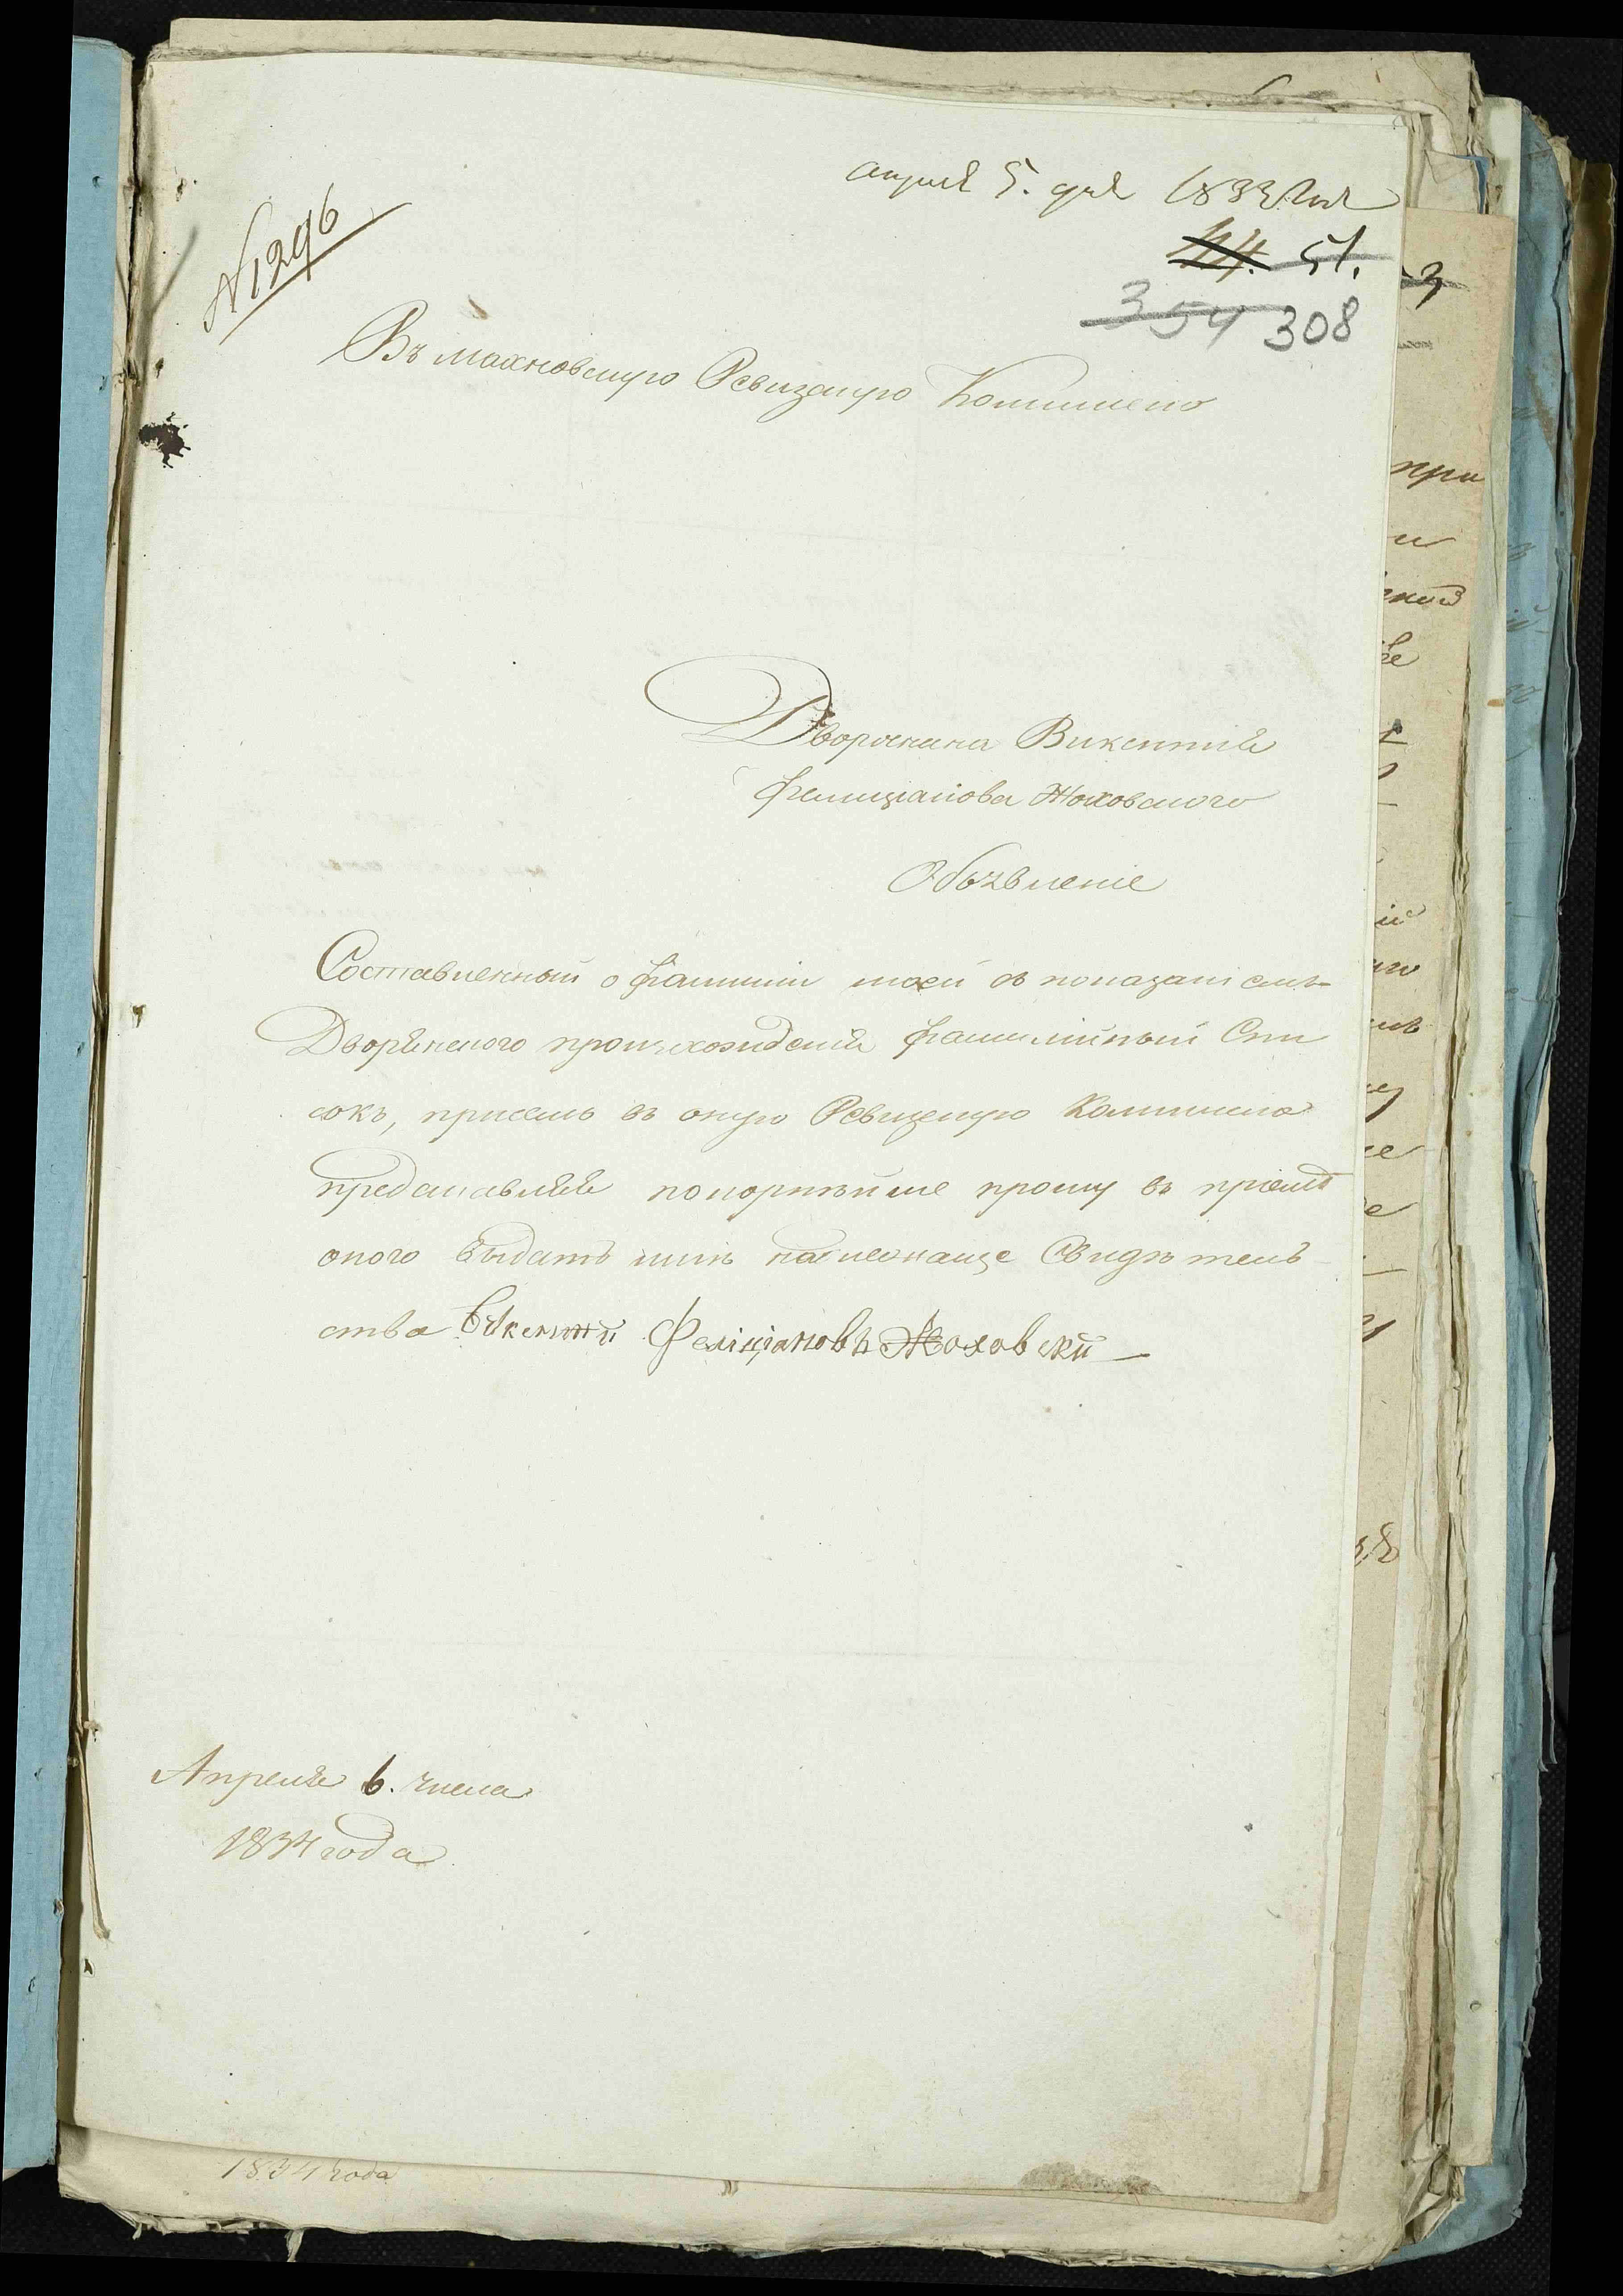 апреля 5. дня 1833 года
44. 51.
354 308
№ 1296
Въ Махновскую Ревизскую Коммисию
Дворянина Викентия
Фелиціанова Жоховского
Объявленіе
Составленный о фамиліи моей съ показаніемъ
Дворянского происхожденія фамилійный Спи
сокъ, присемъ въ оную Ревизскую Коммисію
представляя покорнѣйше прошу въ пріемѣ
оного выдать мнѣ надлежаще Свидѣтель
ства Викентий Феліціановъ Жоховскій
Апреля 6. числа
1834 года
1834 года